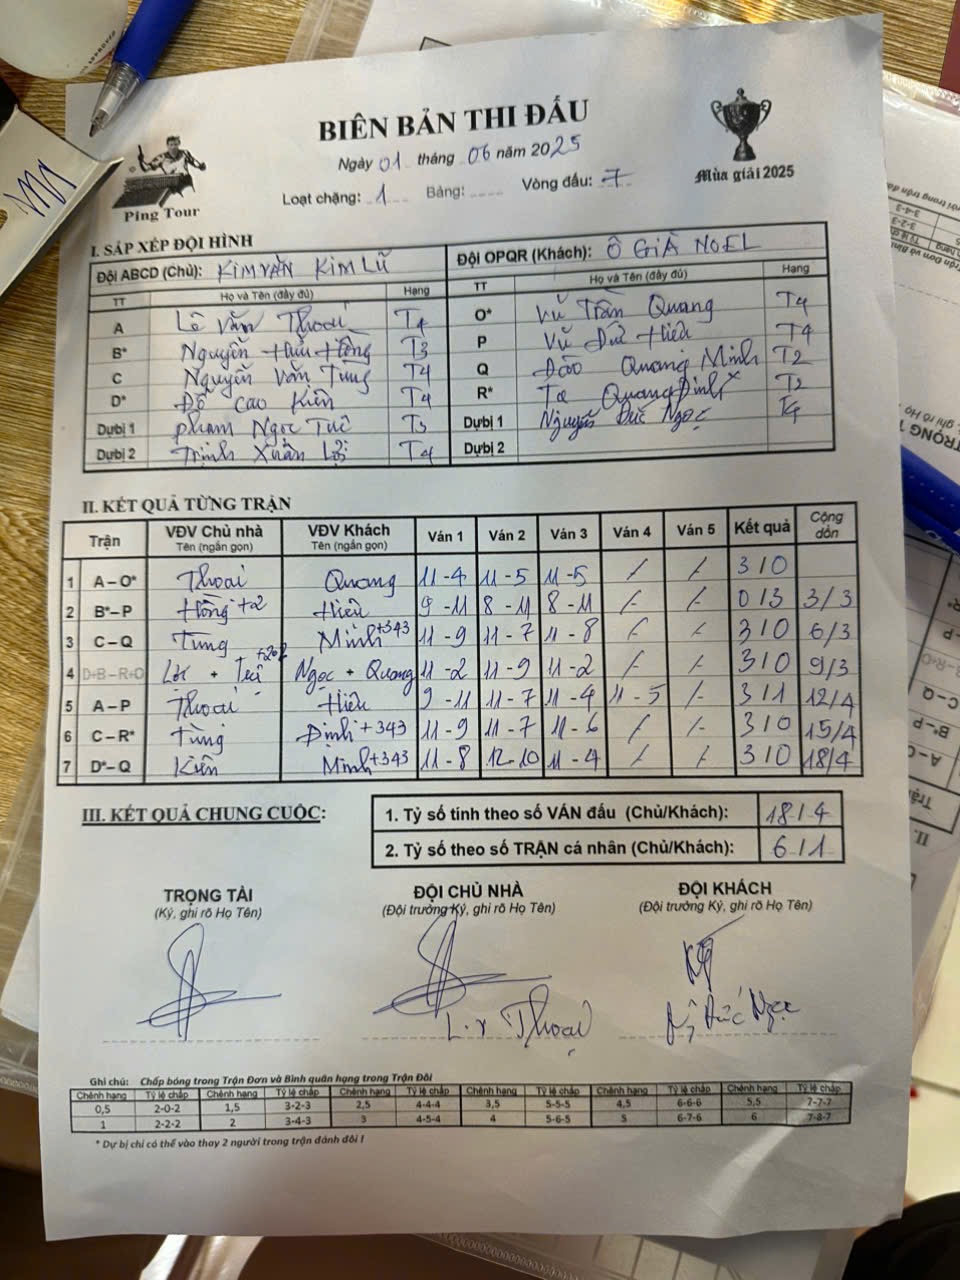 BIÊN BẢN THI ĐẤU
Ngày 01 tháng 06 năm 2025
Loạt chặng: 1 Bảng: Vòng đấu: 7
Ping Tour
Mùa giải 2025
I. SẮP XẾP ĐỘI HÌNH
Đội ABCD (Chủ): KIM VĂN KIM LŨ
Đội OPQR (Khách): Ô GIÀ NOEL
TT Họ và Tên (đầy đủ) Hạng TT Họ và Tên (đầy đủ) Hạng
A Lê Văn Thoại T4 O* Vũ Trần Quang T4
B* Nguyễn Hữu Hồng T3 P Vũ Đức Hiếu T4
C Nguyễn Văn Tùng T4 Q Đào Quang Minh T2
D* Đỗ Cao Kiên T4 R* Tạ Quang Định T2
Dự bị 1 Phạm Ngọc Tuê T3 Dự bị 1 Nguyễn Đức Ngọc T4
Dự bị 2 Trịnh Xuân Lợi T4 Dự bị 2
II. KẾT QUẢ TỪNG TRẬN
Trận VĐV Chủ nhà Tên (ngắn gọn) VĐV Khách Tên (ngắn gọn) Ván 1 Ván 2 Ván 3 Ván 4 Ván 5 Kết quả Cộng dồn
1 A – O* Thoại Quang 11-4 11-5 11-5 / / 3/0
2 B* – P Hồng +2 Hiếu 9-11 8-11 8-11 / / 0/3 3/3
3 C – Q Tùng Minh +343 11-9 11-7 11-8 / / 3/0 6/3
4 D+B – R+O Lợi + Tuê Ngọc + Quang 11-2 11-9 11-2 / / 3/0 9/3
5 A – P Thoại Hiếu 9-11 11-7 11-4 11-5 / 3/1 12/4
6 C – R* Tùng Định +343 11-9 11-7 11-6 / / 3/0 15/4
7 D* – Q Kiên Minh +343 11-8 12-10 11-4 / / 3/0 18/4
III. KẾT QUẢ CHUNG CUỘC:
1. Tỷ số tính theo số VÁN đấu (Chủ/Khách): 18/4
2. Tỷ số theo số TRẬN cá nhân (Chủ/Khách): 6/1
TRỌNG TÀI ĐỘI CHỦ NHÀ ĐỘI KHÁCH
(Ký, ghi rõ Họ Tên) (Đội trưởng Ký, ghi rõ Họ Tên) (Đội trưởng Ký, ghi rõ Họ Tên)
L.V Thoại
Ng Đức Ngọc
Ghi chú: Chấp bóng trong Trận Đơn và Bình quân hạng trong Trận Đôi
Chênh hạng Tỷ lệ chấp Chênh hạng Tỷ lệ chấp Chênh hạng Tỷ lệ chấp Chênh hạng Tỷ lệ chấp Chênh hạng Tỷ lệ chấp Chênh hạng Tỷ lệ chấp
0,5 2-0-2 1,5 3-2-3 2,5 4-4-4 3,5 5-5-5 4,5 6-6-6 5,5 7-7-7
1 2-2-2 2 3-4-3 3 4-5-4 4 5-6-5 5 6-7-6 6 7-8-7
* Dự bị chỉ có thể vào thay 2 người trong trận đánh đôi !